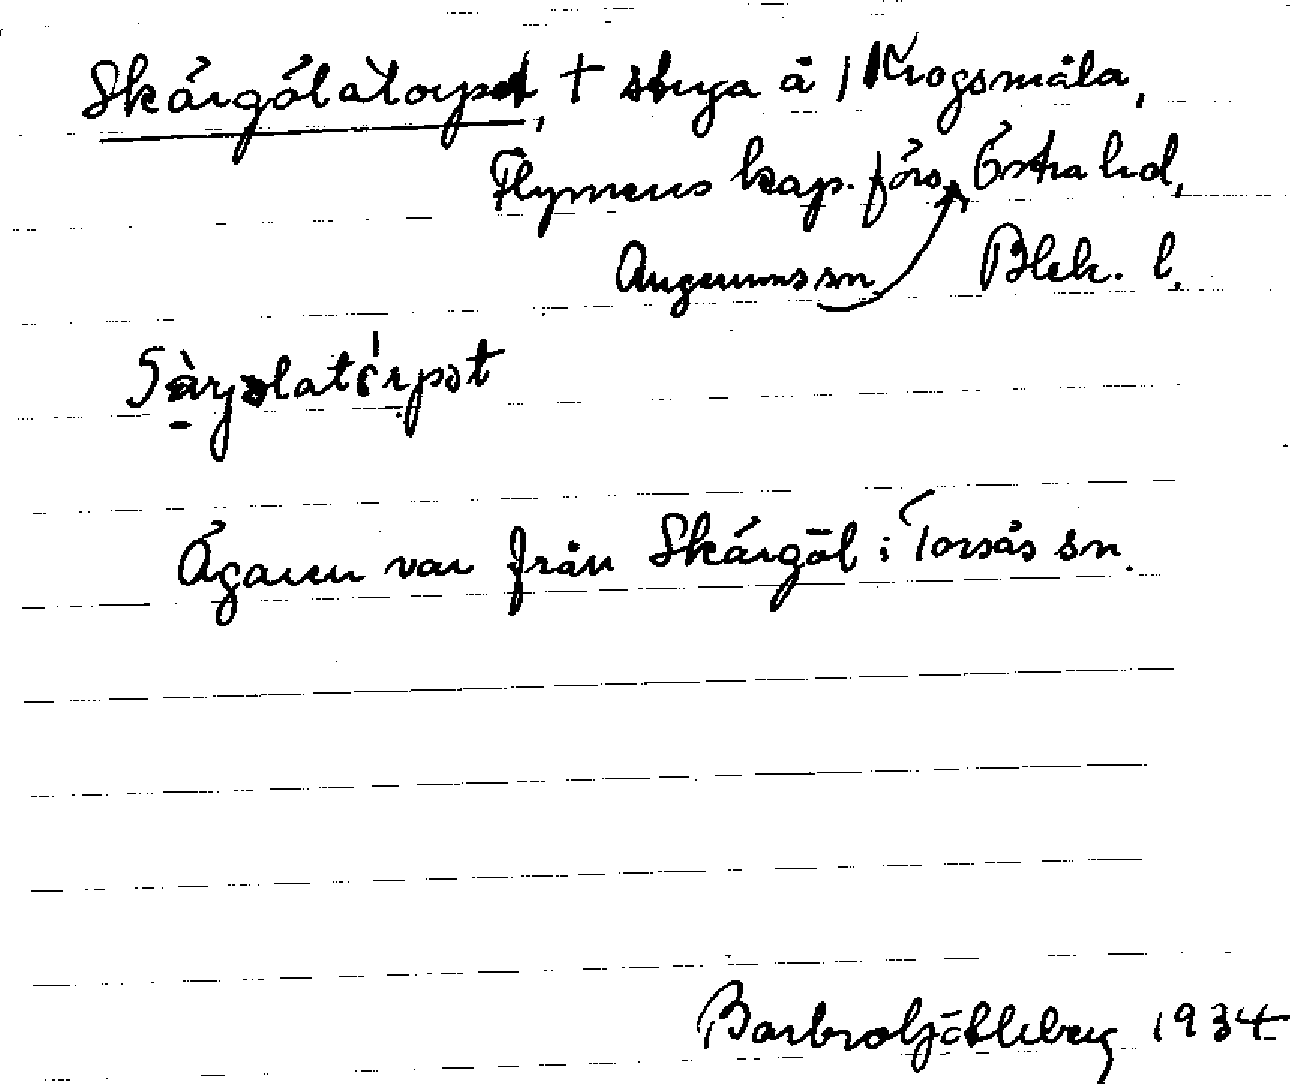 Skärgölatorpet, † stuga å 1 Krogsmåla,
Flymens kap. förs. Östra hd,
Augerums sn Blek. l.
Ägaren var från Skärgöl i Torsås sn.
Barbro Söderberg 1934